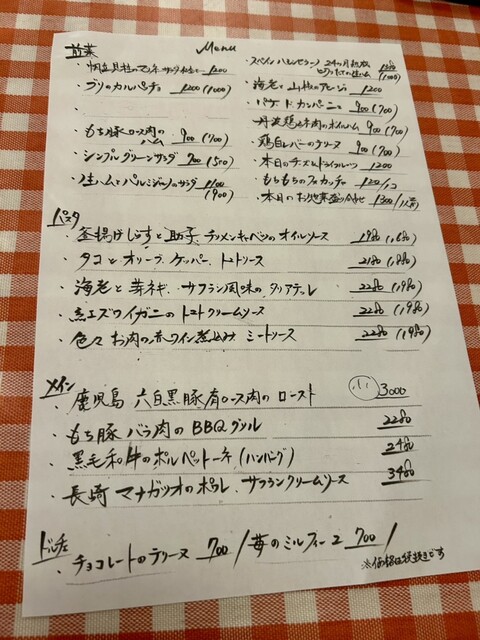 前菜
Menu
・ブリのカルパッチョ 1200 (1000)
・もち豚ロース肉の
ハム 900 (700)
・シンプルグリーンサラダ 700 (500)
・生ハムとパルミジャーノのサラダ 1100
(900)
・スペイン ハモンセラーノ 24ヶ月熟成
・海老と 1200
・パテ ド カンパーニュ 900 (700)
900 (700)
・鶏白レバーのテリーヌ 900 (700)
・本日のチーズとドライフルーツ 1200
・もちもちのフォカッチャ 120/1コ
・本日の 前菜盛り合せ 1300/1人前
パスタ
・釜揚げしらすと チリメンキャベツのオイルソース 1980
・タコとオリーブ、ケッパー、トマトソース 2180 (1880)
・海老と芽ネギ、サフラン風味のタリアテッレ 2280 (1980)
・紅ズワイガニのトマトクリームソース 2280 (1980)
・色々お肉の赤ワイン煮込み ミートソース 2280 (1980)
メイン
・鹿児島 六白黒豚肩ロース肉の ロースト 小 3000
・もち豚 バラ肉の BBQグリル 2280
・黒毛和牛のポルペットーネ (ハンバーグ) 2480
・長崎 マナガツオのポワレ、サフランクリームソース 3480
ドルチェ
・チョコレートのテリーヌ 700 / 苺のミルフィーユ 700 /
※価格は税抜きです